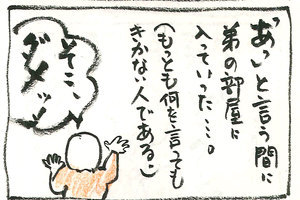 「あっ」と言う間に
弟の部屋に
入っていった…。
(もっとも何を言っても
きかない人である。)
そこ、
ダメッ!